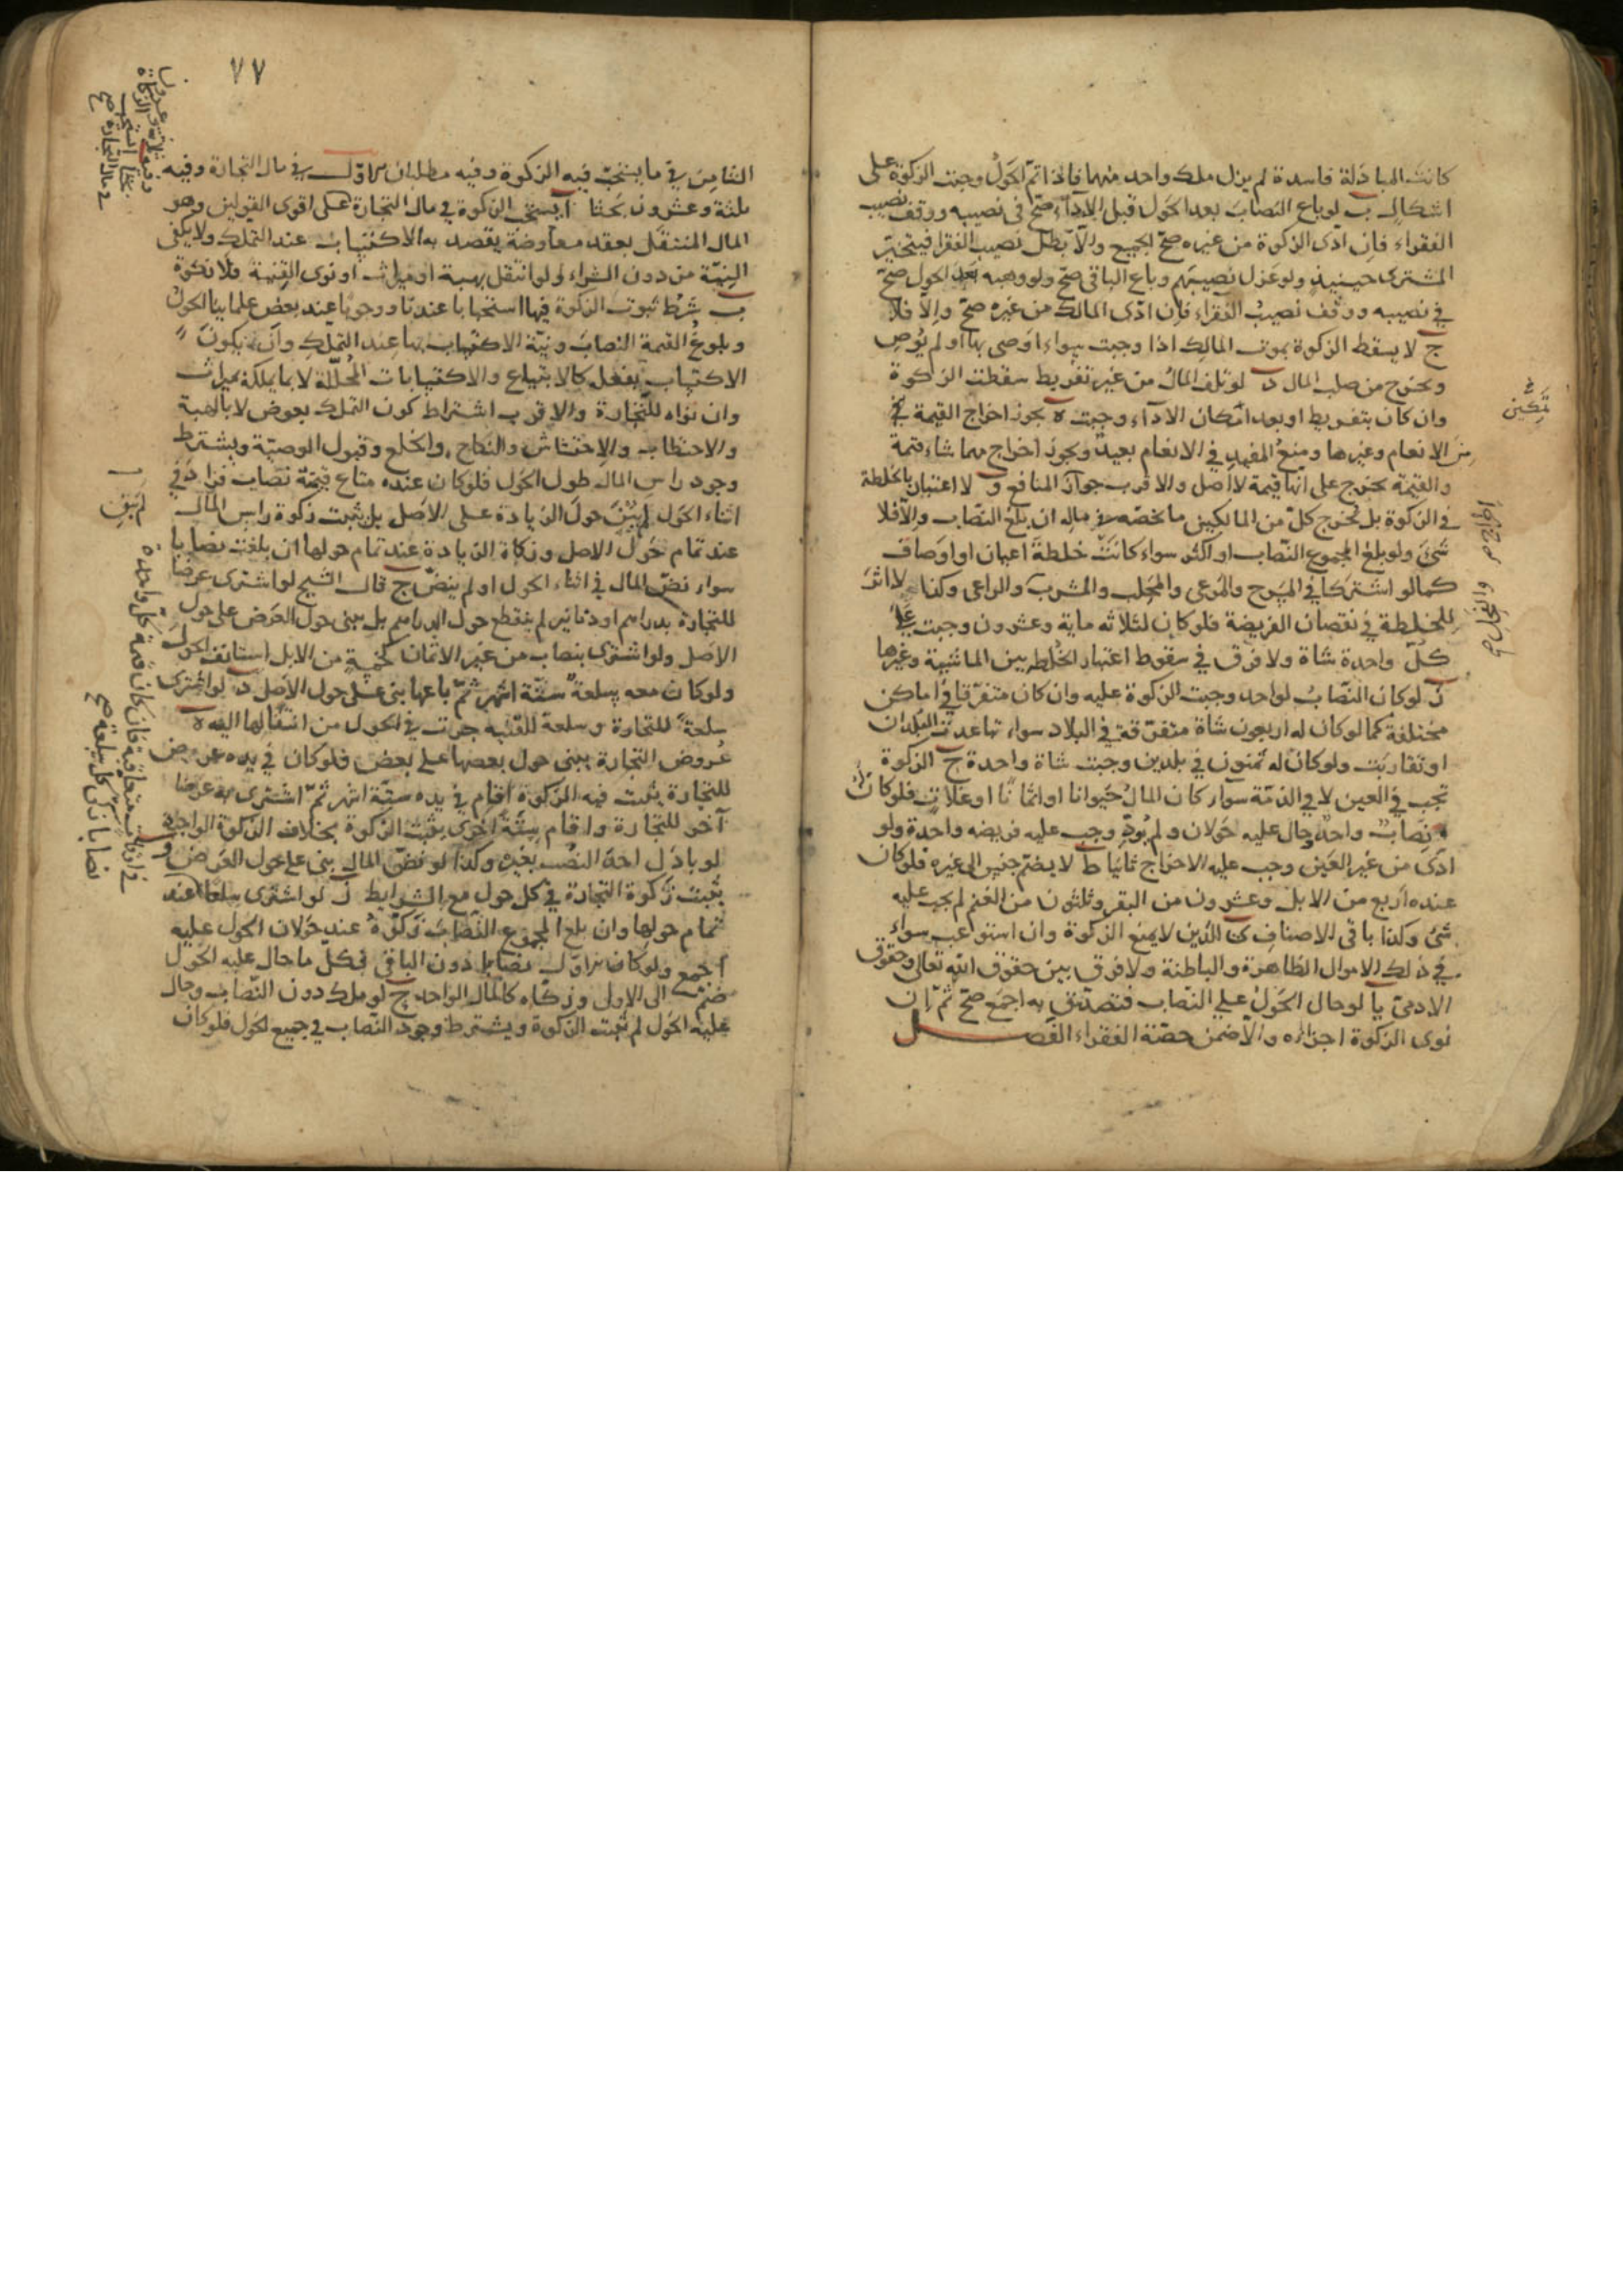 كانت المبادلة فاسدة لم يزل ملك واحد منهما فاذا تم الحول وجبت الزكوة على
اشكال ب لو باع النصاب بعد الحول قبل الاداء صح فى نصيبه ووقف نصيب
الفقراء فان ادى الزكوة من غيره صح الجميع والا بطل نصيب الفقرا فيتخير
المشترى حينيذ ولو عزل نصيبهم وباع الباقى صح ولو وهبه بعد الحول صح
في نصيبه ووقف نصيب الفقراء فان ادى المالك من غيره صح والا فلا
ج لا يسقط الزكوة بموت المالك اذا وجبت سواء اوصى بها او لم يوص
وتخرج من صلب المال د لو تلف المال من غير تفريط سقطت الزكوة
وان كان بتفريط او بعد امكان الاداء وجبت ه يجوز اخراج القيمة في
الانعام وغيرها ومنع المفيد في الانعام بعيد ويجوز اخراج مهما شاء قيمة
والقيمة تخرج على انها قيمة لا اصل والاقرب جواز المنافع و لا اعتبار بالخلطة
في الزكوة بل يخرج كل من المالكين ما يخصه في ماله ان بلغ النصاب والا فلا
شئ ولو بلغ المجموع النصاب او اكثر سواء كانت خلطة اعيان او اوصاف
كما لو اشتركا في المسرح والمرعى والمحلب والمشرب والراعى وكذا لا اثر
للخلطة في نقصان الفريضة فلو كان لثلاثه ماية وعشرون وجبت على
كل واحدة شاة ولا فرق في سقوط اعتبار الخلطه بين الماشية وغيرها
ز لو كان النصاب لواحد وجبت الزكوة عليه وان كان متفرقا في اماكن
مختلفة كما لو كان له اربعون شاة متفرقة في البلاد سواء تباعدت البلدان
او تقاربت ولو كان له ثمنون في بلدين وجبت شاة واحدة ح الزكوة
تجب في العين لا في الذمة سواء كان المال حيوانا او اثمانا او غلات فلو كان
نصاب واحد وحال عليه حولان ولم يود وجب عليه فريضه واحدة ولو
ادى من غير العين وجب عليه الاخراج ثانيا ط لا يضم جنس الى غيره فلو كان
عنده اربع من الابل وعشرون من البقر وثلثون من الغنم لم يجب عليه
شئ وكذا باقى الاصناف ى الدين لا يمنع الزكوة وان استوعب سواء
في ذلك الاموال الظاهرة والباطنة ولا فرق بين حقوق الله تعالى وحقوق
الادمى يا لو حال الحول على النصاب فتصدق به اجمع صح ثم ان
نوى الزكوة اجزاه والا ضمن حصة الفقراء الفصل
في
تمكين
اخراج
٧٧
الثامن في ما يستحب فيه الزكوة وفيه مطلبان الاول في مال التجارة وفيه
ثلثة وعشرون بحثا ا يستحب الزكوة في مال التجارة على اقوى القولين وهو
المال المنتقل بعقد معاوضة يقصد به الاكتساب عند التملك ولا يكفى
النية من دون الشراء ولو انتقل بهبة او ميراث او نوى القنية فلا زكوة
ب شرط ثبوت الزكوة فيها استحبابا عندنا ووجوبا عند بعض علماينا الحول
وبلوغ القيمة النصاب ونية الاكتساب بها عند التملك وان يكون
الاكتساب بفعله كالابتياع والاكتسابات المحللة لا بما يملكه بميراث
وان نواه للتجارة والاقرب اشتراط كون التملك بعوض لا بالهبة
والاحتطاب والاحتشاش والنكاح والخلع وقبول الوصية ويشترط
وجود راس المال طول الحول فلو كان عنده متاع قيمته نصاب فزاد في
اثناء الحول لم يبن حول الزيادة على الاصل بل يثبت زكوة راس المال
عند تمام حول الاصل وزكاة الزيادة عند تمام حولها ان بلغت نصابا
سواء نض المال في اثناء الحول او لم ينض ج قال الشيخ لو اشترى عرضا
للتجارة بدراهم او دنانير لم ينقطع حول الدراهم بل يبنى حول العرض على حول
الاصل ولو اشترى بنصاب من غير الاثمان كخمسة من الابل استانف الحول
ولو كان معه سلعة ستة اشهر ثم باعها بنى على حول الاصل د لو اشترى
سلعة للتجارة وسلعة للقنيه جرت في الحول من انتقالها اليه ه
عروض التجارة يبنى حول بعضها على بعض فلو كان في يده عروض
للتجارة يثبت فيه الزكوة اقام في يده ستة اشهر ثم اشترى به عرضا
آخر للتجارة واقام ستة اخرى يثبت الزكوة بخلاف الزكوة الواجبة
لو بادل احد النصب بغيره وكذا لو نض المال بنى على حول العرض و
يثبت زكوة التجارة في كل حول مع الشرايط ز لو اشترى سلعا عند
تمام حولها وان بلغ المجموع النصاب زكوة عند حولان الحول عليه
اجمع ولو كان الاول نصابا دون الباقى فكل ما حال عليه الحول
ضم الى الاولى وزكاه كالمال الواحد ح لو ملك دون النصاب وحال
عليه الحول لم يثبت الزكوة ويشترط وجود النصاب في جميع الحول فلو كان
لم يبن